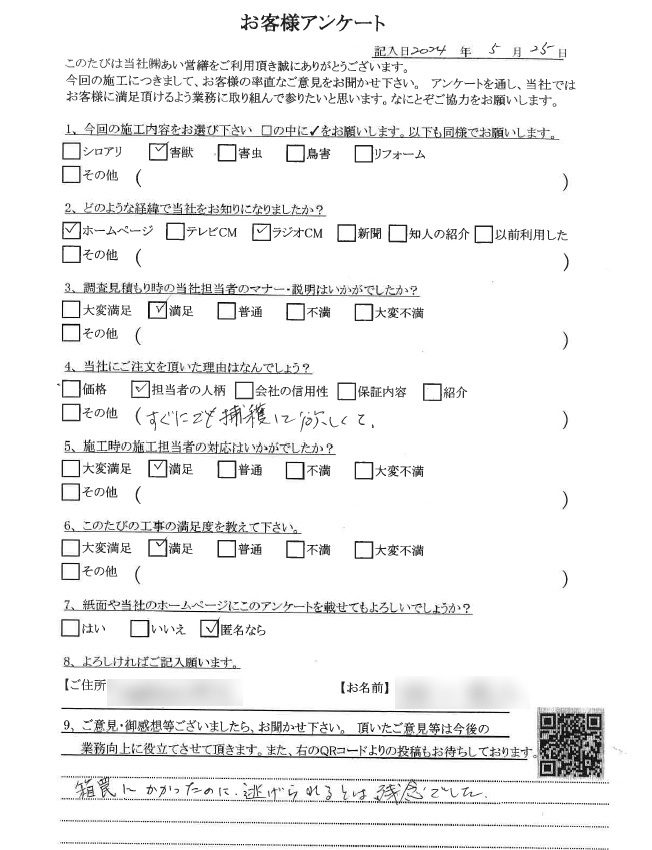 お客様アンケート
記入日2024 年 5 月 25 日
このたびは当社㈱あい営繕をご利用頂き誠にありがとうございます。
今回の施工につきまして、お客様の率直なご意見をお聞かせ下さい。 アンケートを通し、当社では
お客様に満足頂けるよう業務に取り組んで参りたいと思います。なにとぞご協力をお願いします。
1、今回の施工内容をお選び下さい □の中に✓をお願いします。以下も同様でお願いします。
□シロアリ ☑害獣 □害虫 □鳥害 □リフォーム
□その他 ( )
2、どのような経緯で当社をお知りになりましたか？
☑ホームページ □テレビCM ☑ラジオCM □新聞 □知人の紹介 □以前利用した
□その他 ( )
3、調査見積もり時の当社担当者のマナー・説明はいかがでしたか？
□大変満足 ☑満足 □普通 □不満 □大変不満
□その他 ( )
4、当社にご注文を頂いた理由はなんでしょう？
□価格 ☑担当者の人柄 □会社の信用性 □保証内容 □紹介
□その他 (すぐにでも捕獲して欲しくて。 )
5、施工時の施工担当者の対応はいかがでしたか？
□大変満足 ☑満足 □普通 □不満 □大変不満
□その他 ( )
6、このたびの工事の満足度を教えて下さい。
□大変満足 ☑満足 □普通 □不満 □大変不満
□その他 ( )
7、紙面や当社のホームページにこのアンケートを載せてもよろしいでしょうか？
□はい □いいえ ☑匿名なら
8、よろしければご記入願います。
【ご住所 【お名前】
9、ご意見・御感想等ございましたら、お聞かせ下さい。 頂いたご意見等は今後の
業務向上に役立てさせて頂きます。また、右のQRコードよりの投稿もお待ちしております。
箱罠にかかったのに、逃げられるとは残念でした。